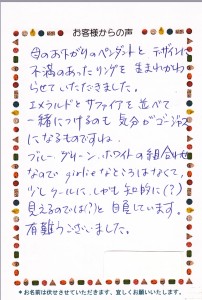 お客様からの声
母のお下がりのペンダントとデザインに
不満のあったリングを生まれかわ
らせていただきました。
エメラルドとサファイアを並べて
一緒につけるのも気分がゴージャス
になるものですね。
ブルー、グリーン、ホワイトの組合せ
なので girlieなところはなくて、
少しクールに、しかも知的に(?)
見えるのでは(?)と自負しています。
有難うございました。
*お名前は伏せさせていただきます、宜しくお願いいたします。